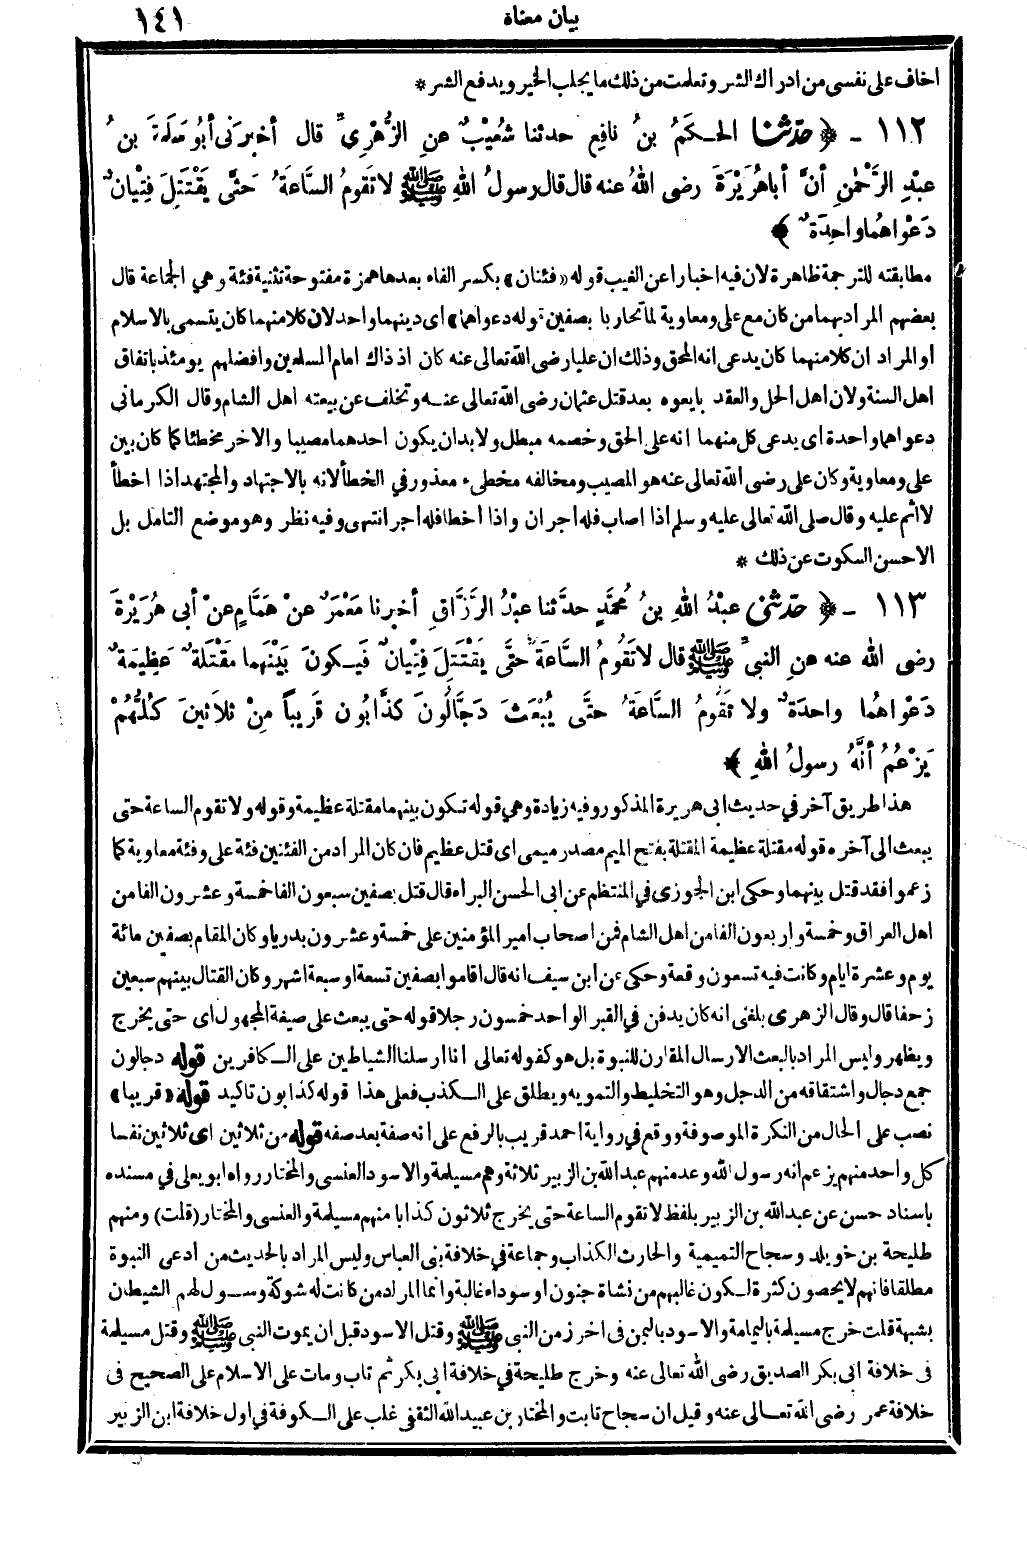 بيان معناة ١٤١
اخاف على نفسى من ادراك الشر وتعلمت من ذلك ما يجلب الخير ويدفع الشر *
١١٢ - ﴿ حدّثنا الحَكَمُ بنُ نافِعٍ حدثنا شُعَيْبٌ عنِ الزُّهْرِيِّ قال أخبرنى أبُو سَلَمَةَ بنُ
عبْدِ الرَّحْمٰنِ أنَّ أباهُرَيْرَةَ رضى اللهُ عنه قال قال رسولُ اللهِ ﷺ لا تَقومُ السَّاعةُ حَتَّى يَقْتَتِلَ فِتْيانٌ
دَعْواهُما واحِدَةٌ ﴾
مطابقته للترجمة ظاهرة لان فيه اخبارا عن الغيب قوله «فئتان» بكسر الفاء بعدها همزة مفتوحة تثنية فئة وهي الجماعة قال
بعضهم المراد بهما من كان مع على ومعاوية لما تحاربا بصفين قوله دعواهما» اى دينهما واحد لان كلا منهما كان يتسمى بالاسلام
او المراد ان كلا منهما كان يدعى انه المحق وذلك ان عليا رضى الله تعالى عنه كان اذ ذاك امام المسلمين وافضلهم يومئذ باتفاق
اهل السنة ولان اهل الحل والعقد بايعوه بعد قتل عثمان رضى الله تعالى عنه وتخلف عن بيعته اهل الشام وقال الكرمانى
دعواهما واحدة اى يدعى كل منهما انه على الحق وخصمه مبطل ولا بد ان يكون احدهما مصيبا والاخر مخطئا كما كان بين
على ومعاوية وكان على رضى الله تعالى عنه هو المصيب ومخالفه مخطىء معذور في الخطأ لانه بالاجتهاد والمجتهد اذا اخطأ
لا اثم عليه وقال صلى الله تعالى عليه وسلم اذا اصاب فله اجران واذا اخطا فله اجر انتهى وفيه نظر وهو موضع التامل بل
الاحسن السكوت عن ذلك *
١١٣ - ﴿ حدّثنى عبْدُ اللهِ بنُ مُحمَّدٍ حدَّثنا عبْدُ الرَّزَّاقِ أخبرنا مَعْمَرٌ عنْ هَمَّامٍ عنْ أبى هُرَيْرةَ
رضى الله عنه عنِ النبيِّ ﷺ قال لا تَقُومُ السَّاعَةُ حتَّى يَقْتَتِلَ فِتْيانٌ فيَكونَ بَيْنَهما مَقْتَلَةٌ عَظِيمَةٌ
دَعْواهُما واحدَةٌ ولا تَقُومُ السَّاعَةُ حتَّى يُبْعَثَ دَجَّالُونَ كذَّابُون قَرِيباً مِنْ ثلاثينَ كُلُّهُمْ
يَزْعُمُ أنَّهُ رسولُ اللهِ ﴾
هذا طريق آخر في حديث ابى هريرة المذكور وفيه زيادة وهي قوله تكون بينهما مقتلة عظيمة وقوله ولا تقوم الساعة حتى
يبعث الى آخره قوله مقتلة عظيمة المقتلة بفتح الميم مصدر ميمى اى قتل عظيم فان كان المراد من الفئتين فئة على وفئة معاوية كما
زعموا فقد قتل بينهما وحكى ابن الجوزى في المنتظم عن ابى الحسن البراء قال قتل بصفين سبعون الفا خمسة وعشرون الفا من
اهل العراق وخمسة واربعون الفا من اهل الشام فمن اصحاب امير المؤمنين على خمسة وعشرون بدريا وكان المقام بصفين مائة
يوم وعشرة ايام وكانت فيه تسعون وقعة وحكى عن ابن سيف انه قال اقاموا بصفين تسعة او سبعة اشهر وكان القتال بينهم سبعين
زحفا قال وقال الزهرى بلغنى انه كان يدفن في القبر الواحد خمسون رجلا قوله حتى يبعث على صيغة المجهول اى حتى يخرج
ويظهر وليس المراد بالبعث الارسال المقارن للنبوة بل هو كقوله تعالى انا ارسلنا الشياطين على الكافرين قوله دجالون
جمع دجال واشتقاقه من الدجل وهو التخليط والتمويه ويطلق على الكذب فعلى هذا قوله كذابون تاكيد قوله «قريبا»
نصب على الحال من النكرة الموصوفة ووقع في رواية احمد قريب بالرفع على انه صفة بعد صفه قوله من ثلاثين اى ثلاثين نفسا
كل واحد منهم يزعم انه رسول الله وعد منهم عبد الله بن الزبير ثلاثة وهم مسيلمة والاسود العنسى والمختار رواه ابو يعلى في مسنده
باسناد حسن عن عبد الله بن الزبير بلفظ لا تقوم الساعة حتى يخرج ثلاثون كذابا منهم مسيلمة والعنسى والمختار (قلت) ومنهم
طليحة بن خويلد وسجاح التميمية والحارث الكذاب وجماعة في خلافة بنى العباس وليس المراد بالحديث من ادعى النبوة
مطلقا فانهم لا يحصون كثرة لكون غالبهم من نشاة جنون او سوداء غالبة وانما المراد من كانت له شوكة وسول لهم الشيطان
بشبهة قلت خرج مسيلمة باليمامة والاسود باليمن فى اخر زمن النبى ﷺ وقتل الاسود قبل ان يموت النبى ﷺ وقتل مسيلمة
فى خلافة ابى بكر الصديق رضى الله تعالى عنه وخرج طليحة في خلافة ابى بكر ثم تاب ومات على الاسلام على الصحيح فى
خلافة عمر رضى الله تعالى عنه وقيل ان سجاح تابت والمختار بن عبيد الله الثقفى غلب على الكوفة في اول خلافة ابن الزبير